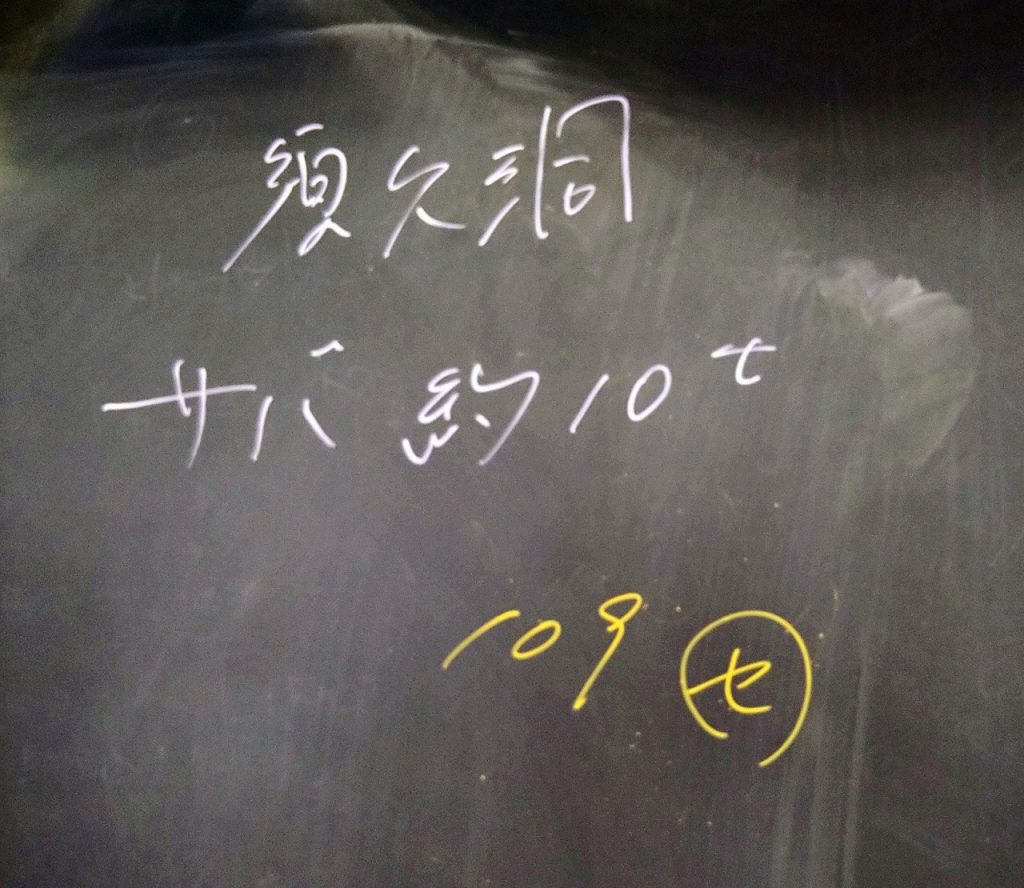 須久洞
サバ 約10t
109 ㋝